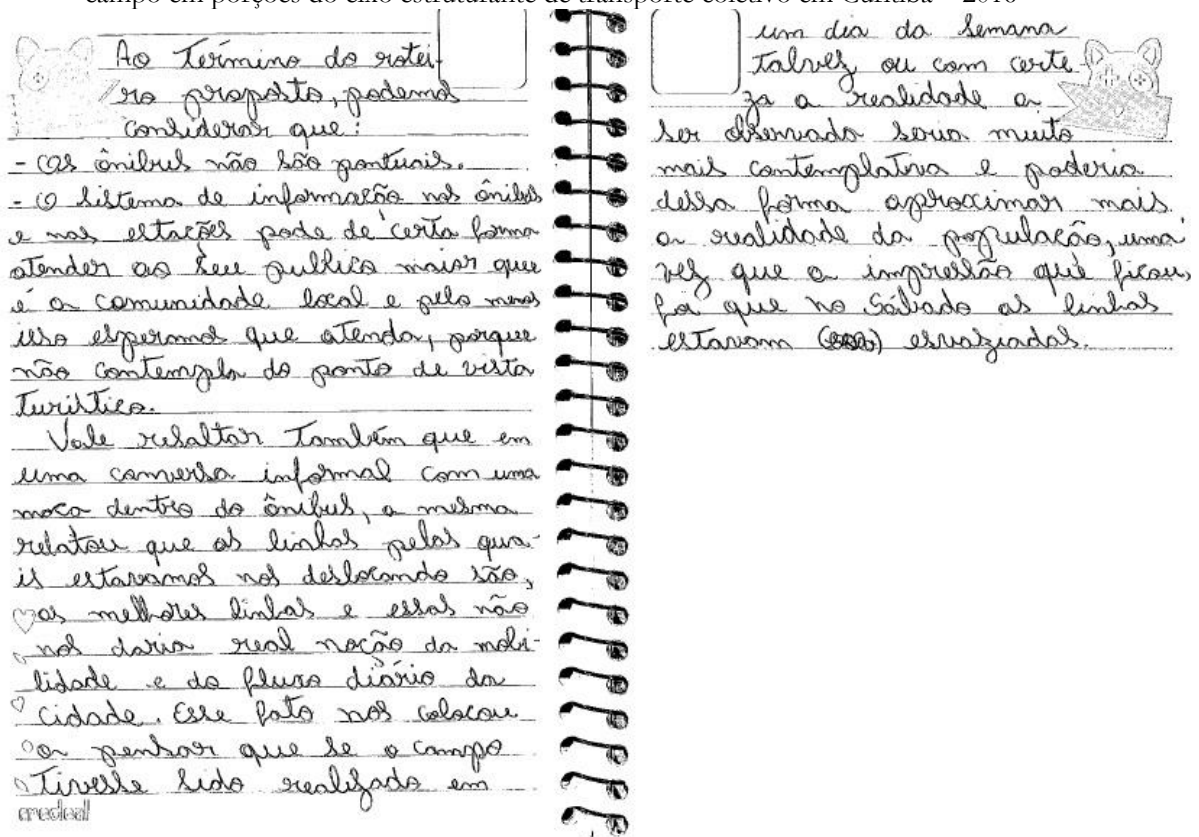 campo em porções do eixo estruturante de transporte coletivo em Curitiba – 2016
Ao Término do rotei-
ro proposto, podemos
considerar que:
- Os ônibus não são pontuais.
- O sistema de informação nos ônibus
e nas estações pode de certa forma
atender ao seu publico maior que
é a comunidade local e pelo menos
isso esperamos que atenda, porque
não contempla do ponto de vista
Turístico.
Vale resaltar Também que em
uma conversa informal com uma
moca dentro do ônibus, a mesma
relatou que as linhas pelas qua-
is estavamos nos deslocando são,
as melhores linhas e essas não
nos daria real noção da mobi-
lidade e do fluxo diário da
cidade. Esse fato nos colocou
a pensar que se o campo
Tivesse sido realizado em
credeal
um dia da semana
Talvez ou com certe
za a realidade a
ser observada seria muito
mais contemplativa e poderia
dessa forma aproximar mais
a realidade da população, uma
vez que a impressão que ficou,
foi que no Sábado as linhas
estavam esvaziadas.